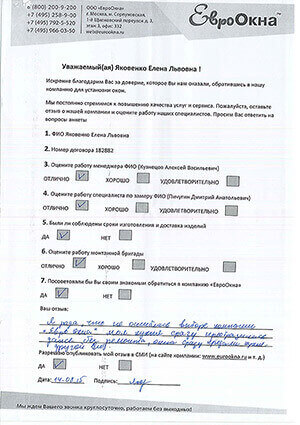 8 (800) 200-9-200
+7 (495) 258-9-00
+7 (495) 792-5-520
+7 (495) 966-03-50
ООО «ЕвроОкна»
г. Москва, м. Серпуховская,
этаж 3, офис 332
ЕвроОкна!
Уважаемый(ая) Яковенко Елена Львовна !
Искренне благодарим Вас за доверие, которое Вы нам оказали, обратившись в нашу
компанию для установки окон.
Мы постоянно стремимся к повышению качества услуг и сервиса. Пожалуйста, оставьте
отзыв о нашей компании и оцените работу наших специалистов. Просим Вас ответить на
вопросы анкеты
1. ФИО Яковенко Елена Львовна
2. Номер договора 182ВВ2
3. Оцените работу менеджера ФИО (Кузнецов Алексей Васильевич)
ОТЛИЧНО ХОРОШО УДОВЛЕТВОРИТЕЛЬНО
4. Оцените работу специалиста по замеру ФИО (Пичугин Дмитрий Анатольевич)
ОТЛИЧНО ХОРОШО УДОВЛЕТВОРИТЕЛЬНО
5. Были ли соблюдены сроки изготовления и доставки изделий
ДА НЕТ
6. Оцените работу монтажной бригады
ОТЛИЧНО ХОРОШО УДОВЛЕТВОРИТЕЛЬНО
7. Посоветовали бы Вы своим знакомым обратиться в компанию «ЕвроОкна»
ДА НЕТ
Ваш отзыв:
Я рада, что не ошиблась выборе компании
окна" моя кухня сразу преобразилась
даже без ремонта, окна сразу
другой вид.
Разрешаю опубликовать мой отзыв в СМИ (на сайте компании: www.eurookna.ru и т. д.)
ДА НЕТ
Дата: 14.08.15 Подпись:
Мы ждем Вашего звонка круглосуточно, работаем без выходных!